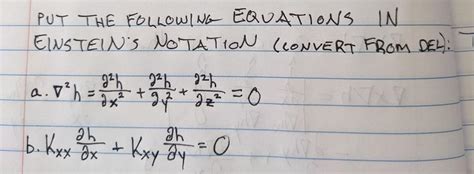 PUT THE FOLLOWING EQUATIONS IN
EINSTEIN'S NOTATION (CONVERT FROM DEL):
a. ∇²h = ∂²h/∂x² + ∂²h/∂y² + ∂²h/∂z² = 0
b. Kxx ∂h/∂x + Kxy ∂h/∂y = 0